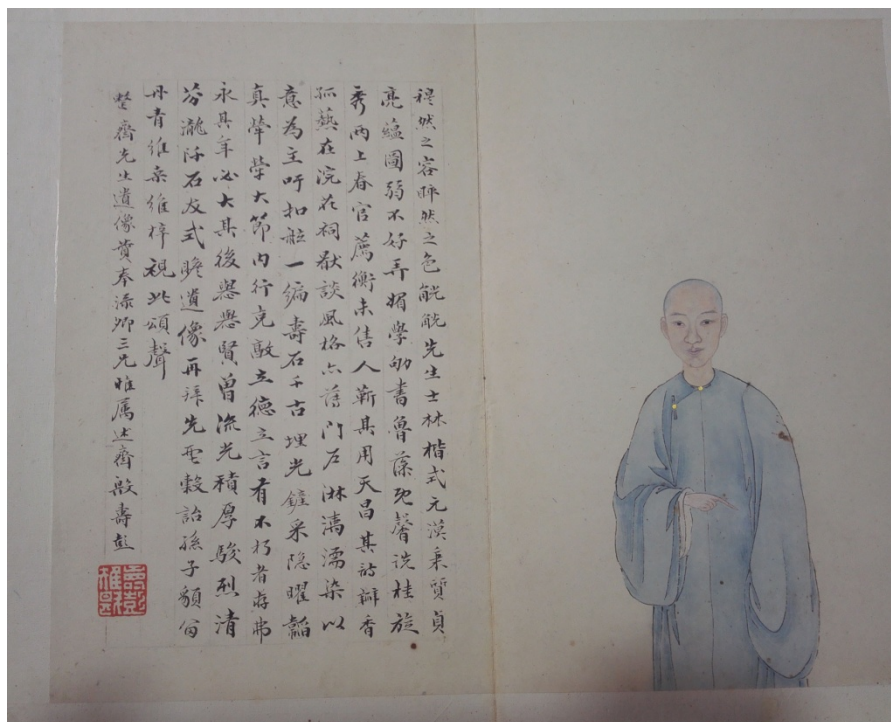 穆然之容晬然之色觥觥先生士林楷式元漠秉質貞
亮蘊圖弱不好弄媚學劬書魯藻既馨詵桂旋
秀兩上春官薦衡未售人蘄其用天昌其詩瓣香
孤藝在浣花祠歗談風格六落門戶淋漓濡染以
意為主吁扣舷一編壽石千古埋光鏟采隱曜韜
真犖犖大節內行克敵立德立言有不朽者存弗
永其年必大其後譽譽賢曾流光積厚駿烈清
芬瀧阡石友式瞻遺像再拜先型穀詒孫子額
丹青維桑維梓視此頌聲
齋先生遺像贊奉淥卿三兄雅屬述齋殷壽彭
壽彭